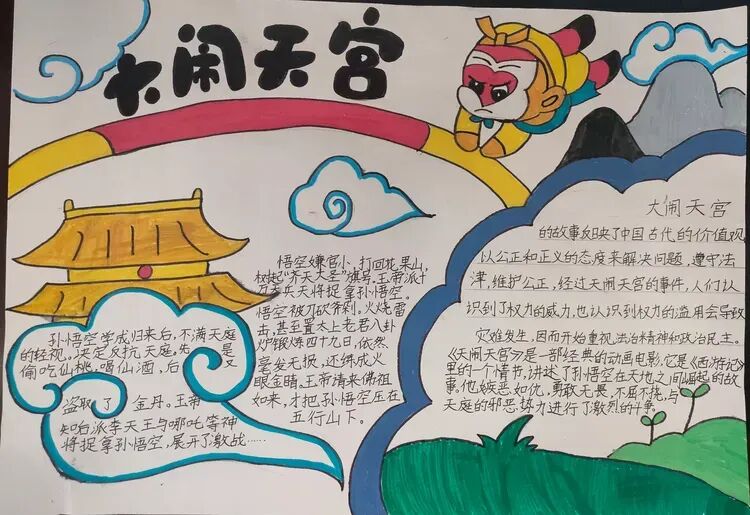 大闹天宫
孙悟空学成归来后，不满天庭
的轻视，决定反抗天庭。先 是
偷吃仙桃，喝仙酒，后 又
盗取 了 金丹。玉帝
知后派李天王与哪吒等神
将捉拿孙悟空，展开了激战……
悟空嫌官小，打回花果山，
树起“齐天大圣”旗号。玉帝派十
万天兵天将捉拿孙悟空。
悟空被刀砍斧剁，火烧雷
击，甚至置太上老君八卦
炉锻炼四十九日，依然
毫发无损，还练成火
眼金睛。玉帝请来佛祖
如来，才把孙悟空压在
五行山下。
大闹天宫
的故事反映了中国古代的价值观，
以公正和正义的态度来解决问题，遵守法
津，维护公正，经过天闹天宫的事件，人们认
识到了权力的威力，也认识到权力的滥用会导致
灾难发生，因而开始重视法治精神和政治民主。
《大闹天宫》是一部经典的动画电影，它是《西游记》
里的一个情节，讲述了孙悟空在天地之间崛起的故
事。他嫉恶如仇，勇敢无畏，不屈不挠，与
天庭的邪恶势力进行了激烈的斗争。